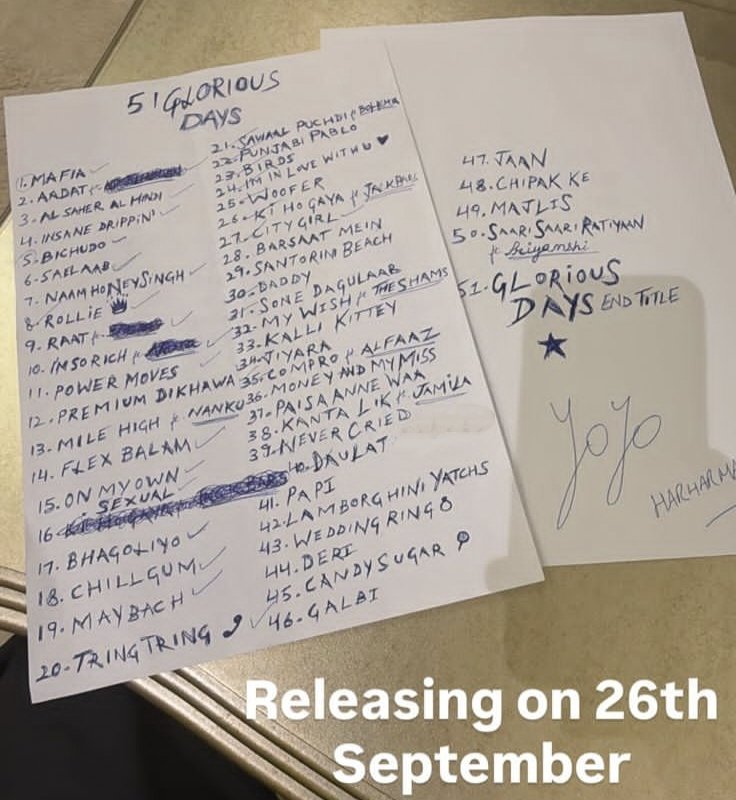 51 GLORIOUS
DAYS
1. MAFIA
2. AADAT ft.
3. AL SAHER AL HINDI
4. INSANE DRIPPIN'
5. BICHUDO
6. SAELAAB
7. NAAM HONEY SINGH
8. ROLLIE
9. RAAT ft.
10. I'M SO RICH ft.
11. POWER MOVES
12. PREMIUM DIKHAWA
13. MILE HIGH ft. NANKU
14. FLEX BALAM
15. ON MY OWN
16. SEXUAL
17. BHAGOLIYO
18. CHILLGUM
19. MAYBACH
20. TRING TRING
21. SAWAAL PUCHDI ft. BOHEMIA
22. PUNJABI PABLO
23. BIRDS
24. I'M IN LOVE WITH U ♥
25. WOOFER
26. KI HO GAYA ft.
27. CITY GIRL
28. BARSAAT MEIN
29. SANTORINI BEACH
30. DADDY
31. SONE DA GULAAB
32. MY WISH ft. THE SHAMS
33. KALLI KITTEY
34. JIYARA
35. COMPRO ft. ALFAAZ
36. MONEY AND MY MISS
37. PAISA ANNE WAA
38. KANTA LIK ft. JAMILA
39. NEVER CRIED
40. DAULAT
41. PAPI
42. LAMBORGHINI YATCHS
43. WEDDING RING
44. DERI
45. CANDY SUGAR
46. GALBI
47. JAAN
48. CHIPAK KE
49. MAJLIS
50. SAARI SAARI RATIYAAN
ft. Sriyanshi
51. GLORIOUS
DAYS END TITLE
★
YoYo
HARHARMA
Releasing on 26th
September